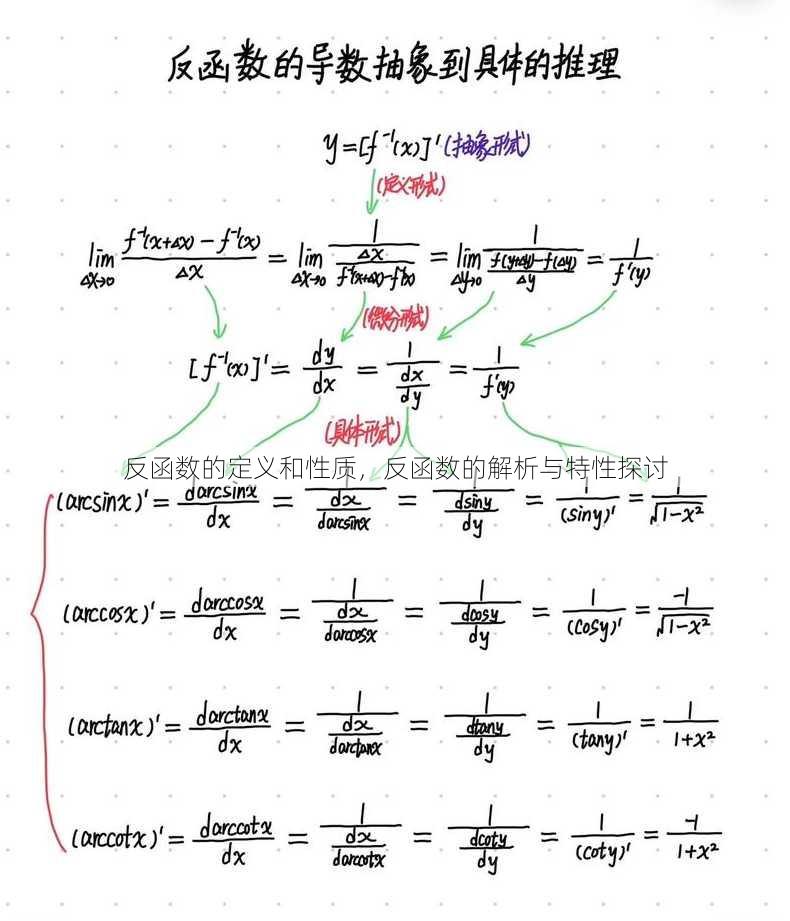 反函数的导数抽象到具体的推理
y=[f⁻¹(x)]'(抽象形式)
(定义形式)
lim Δx→0 (f⁻¹(x+Δx)-f⁻¹(x))/Δx = lim Δx→0 1/(Δx/(f⁻¹(x+Δx)-f⁻¹(x))) = lim Δy→0 1/((f(y+Δy)-f(Δy))/Δy) = 1/f'(y)
(微分形式)
[f⁻¹(x)]' = dy/dx = 1/(dx/dy) = 1/f'(y)
(具体形式)
反函数的定义和性质，反函数的解析与特性探讨
(arcsinx)' = darcsinx/dx = 1/(dx/darcsinx) = 1/(dsiny/dy) = 1/(siny)' = 1/√(1-x²)
(arccosx)' = darccosx/dx = 1/(dx/darccosx) = 1/(dcosy/dy) = 1/(cosy)' = -1/√(1-x²)
(arctanx)' = darctanx/dx = 1/(dx/darctanx) = 1/(dtany/dy) = 1/(tany)' = 1/(1+x²)
(arccotx)' = darccotx/dx = 1/(dx/darccotx) = 1/(dcoty/dy) = 1/(coty)' = -1/(1+x²)